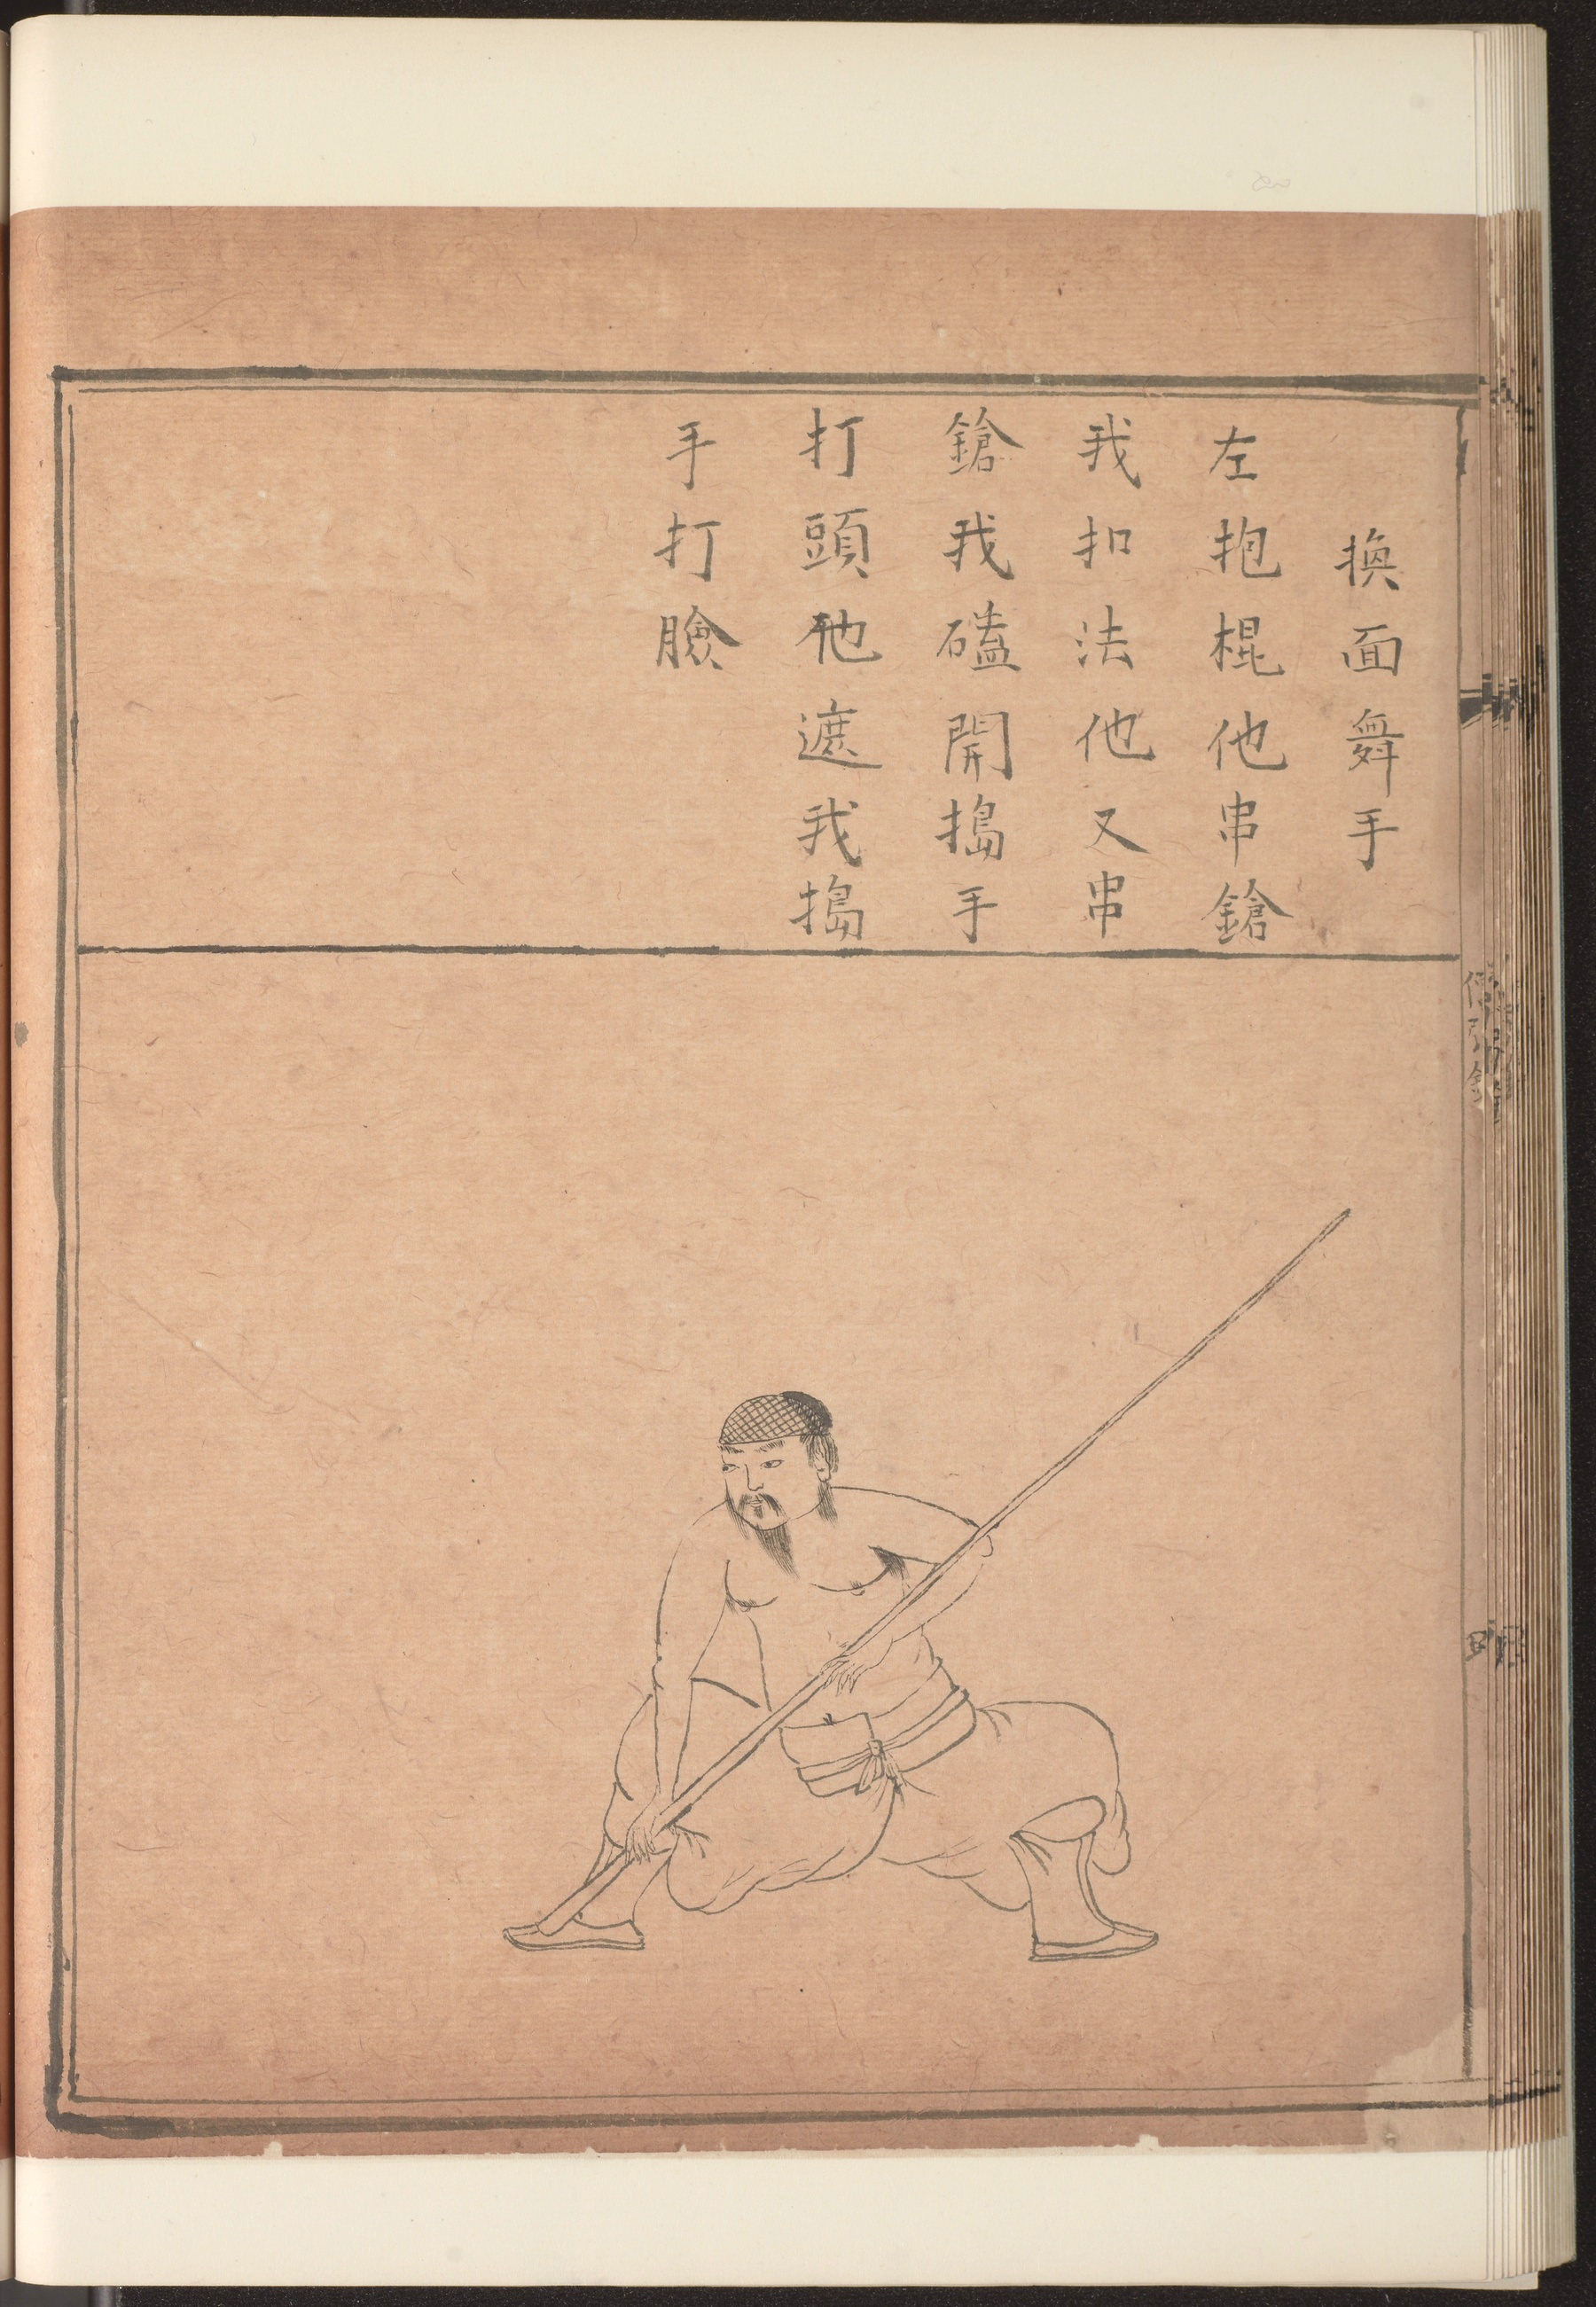 換面舞手
左抱棍他串鎗
我扣法他又串
鎗我磕開搗手
打頭他遮我搗
手打臉